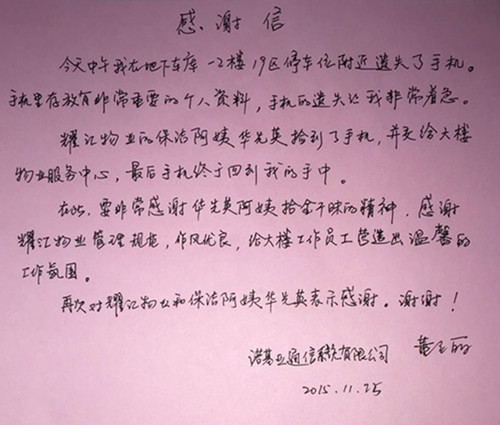 感谢信
今天中午我在地下车库-2楼19区停车位附近遗失了手机。
手机里存放有非常重要的个人资料，手机的遗失让我非常着急。
耀江物业的保洁阿姨华先英拾到了手机，并交给大楼
物业服务中心，最后手机终于回到我的手中。
在此，要非常感谢华先英阿姨拾金不昧的精神，感谢
耀江物业管理规范，作风优良，给大楼工作员工营造出温馨的
工作氛围。
再次对耀江物业和保洁阿姨华先英表示感谢。谢谢！
诺基亚通信系统有限公司 黄 丽
2015.11.25